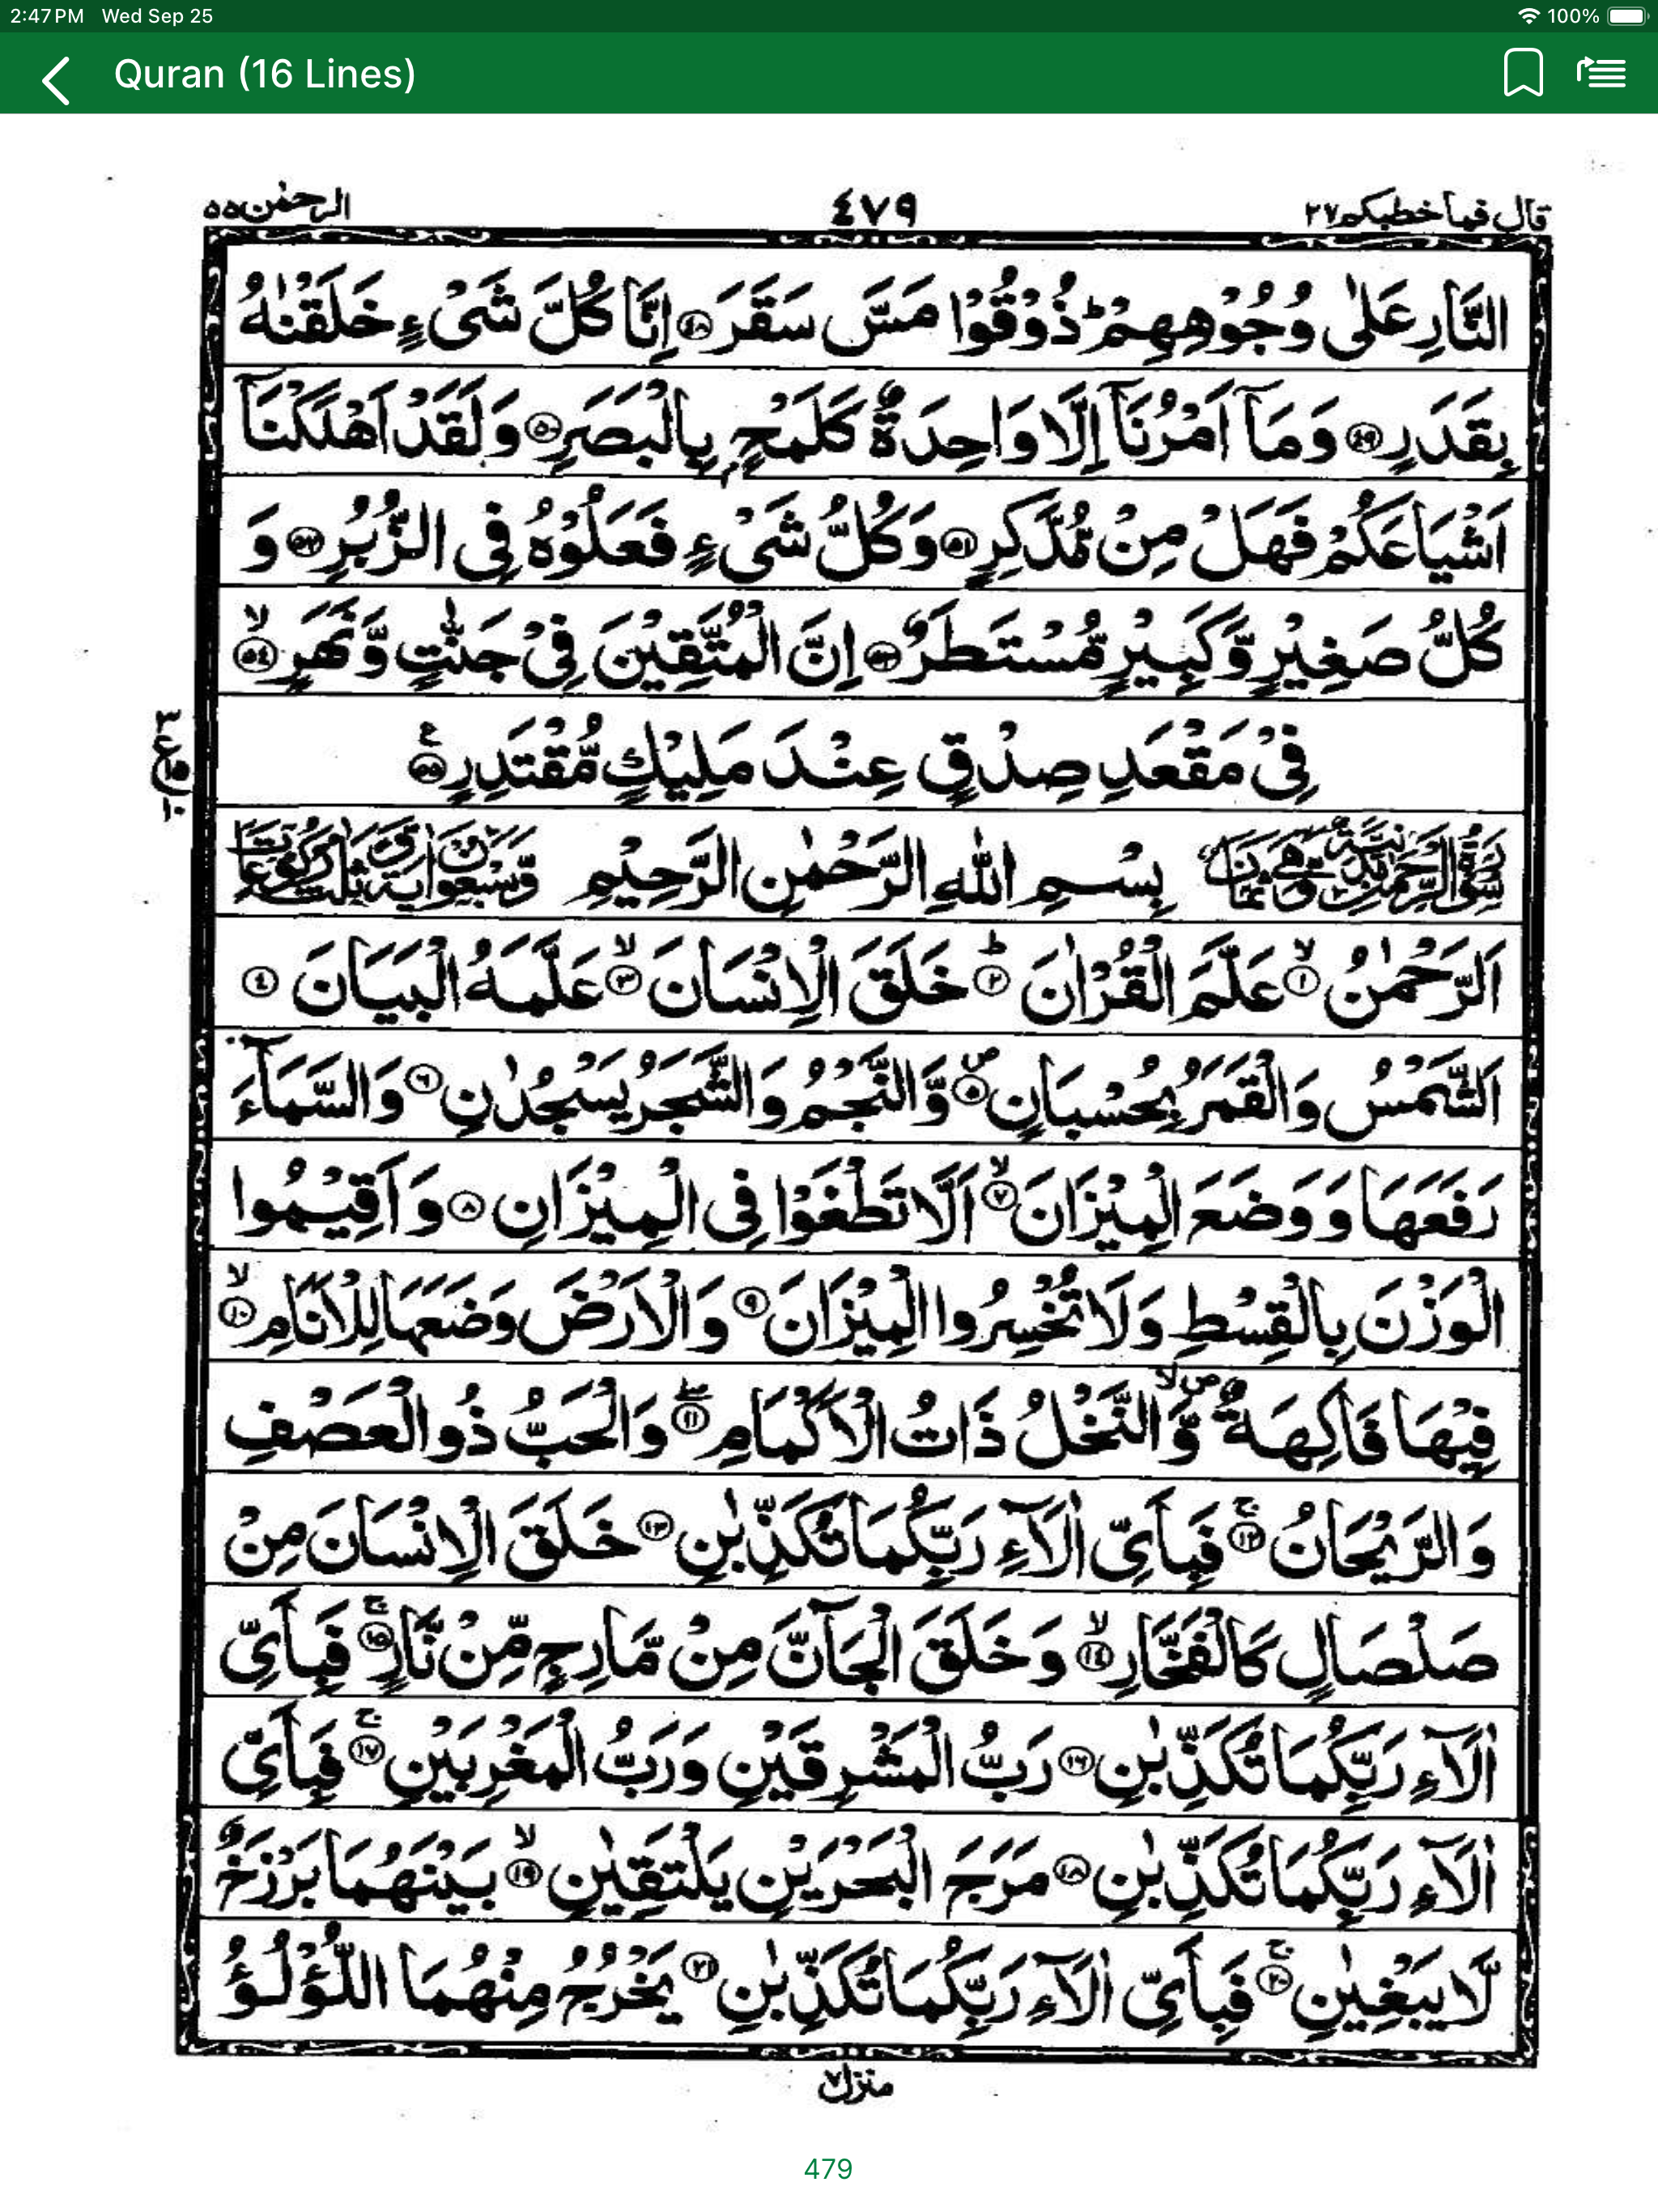 2:47 PM Wed Sep 25 100%
Quran (16 Lines)
قال فما خطبكم ٢٧ ٤٧٩ الرحمٰن ٥٥
النَّارِ عَلٰى وُجُوْهِهِمْ ؕ ذُوْقُوْا مَسَّ سَقَرَ ﴿٤٨﴾ اِنَّا كُلَّ شَىْءٍ خَلَقْنٰهُ
بِقَدَرٍ ﴿٤٩﴾ وَمَاۤ اَمْرُنَاۤ اِلَّا وَاحِدَةٌ كَلَمْحٍۭ بِالْبَصَرِ ﴿٥٠﴾ وَلَقَدْ اَهْلَكْنَاۤ
اَشْيَاعَكُمْ فَهَلْ مِنْ مُّدَّكِرٍ ﴿٥١﴾ وَكُلُّ شَىْءٍ فَعَلُوْهُ فِى الزُّبُرِ ﴿٥٢﴾ وَ
كُلُّ صَغِيْرٍ وَّكَبِيْرٍ مُّسْتَطَرٌ ﴿٥٣﴾ اِنَّ الْمُتَّقِيْنَ فِىْ جَنّٰتٍ وَّنَهَرٍ ۙ﴿٥٤﴾
فِىْ مَقْعَدِ صِدْقٍ عِنْدَ مَلِيْكٍ مُّقْتَدِرٍ ﴿٥٥﴾
بِسْمِ اللّٰهِ الرَّحْمٰنِ الرَّحِيْمِ
اَلرَّحْمٰنُ ۙ﴿١﴾ عَلَّمَ الْقُرْاٰنَ ؕ﴿٢﴾ خَلَقَ الْاِنْسَانَ ۙ﴿٣﴾ عَلَّمَهُ الْبَيَانَ ﴿٤﴾
اَلشَّمْسُ وَالْقَمَرُ بِحُسْبَانٍ ۪﴿٥﴾ وَّالنَّجْمُ وَالشَّجَرُ يَسْجُدٰنِ ﴿٦﴾ وَالسَّمَآءَ
رَفَعَهَا وَوَضَعَ الْمِيْزَانَ ۙ﴿٧﴾ اَلَّا تَطْغَوْا فِى الْمِيْزَانِ ﴿٨﴾ وَاَقِيْمُوا
الْوَزْنَ بِالْقِسْطِ وَلَا تُخْسِرُوا الْمِيْزَانَ ﴿٩﴾ وَالْاَرْضَ وَضَعَهَا لِلْاَنَامِ ۙ﴿١٠﴾
فِيْهَا فَاكِهَةٌ وَّالنَّخْلُ ذَاتُ الْاَكْمَامِ ﴿١١﴾ وَالْحَبُّ ذُو الْعَصْفِ
وَالرَّيْحَانُ ۚ﴿١٢﴾ فَبِاَىِّ اٰلَآءِ رَبِّكُمَا تُكَذِّبٰنِ ﴿١٣﴾ خَلَقَ الْاِنْسَانَ مِنْ
صَلْصَالٍ كَالْفَخَّارِ ۙ﴿١٤﴾ وَخَلَقَ الْجَآنَّ مِنْ مَّارِجٍ مِّنْ نَّارٍ ۚ﴿١٥﴾ فَبِاَىِّ
اٰلَآءِ رَبِّكُمَا تُكَذِّبٰنِ ﴿١٦﴾ رَبُّ الْمَشْرِقَيْنِ وَرَبُّ الْمَغْرِبَيْنِ ۚ﴿١٧﴾ فَبِاَىِّ
اٰلَآءِ رَبِّكُمَا تُكَذِّبٰنِ ﴿١٨﴾ مَرَجَ الْبَحْرَيْنِ يَلْتَقِيٰنِ ۙ﴿١٩﴾ بَيْنَهُمَا بَرْزَخٌ
لَّا يَبْغِيٰنِ ۚ﴿٢٠﴾ فَبِاَىِّ اٰلَآءِ رَبِّكُمَا تُكَذِّبٰنِ ﴿٢١﴾ يَخْرُجُ مِنْهُمَا اللُّؤْلُؤُ
منزل ٧
479